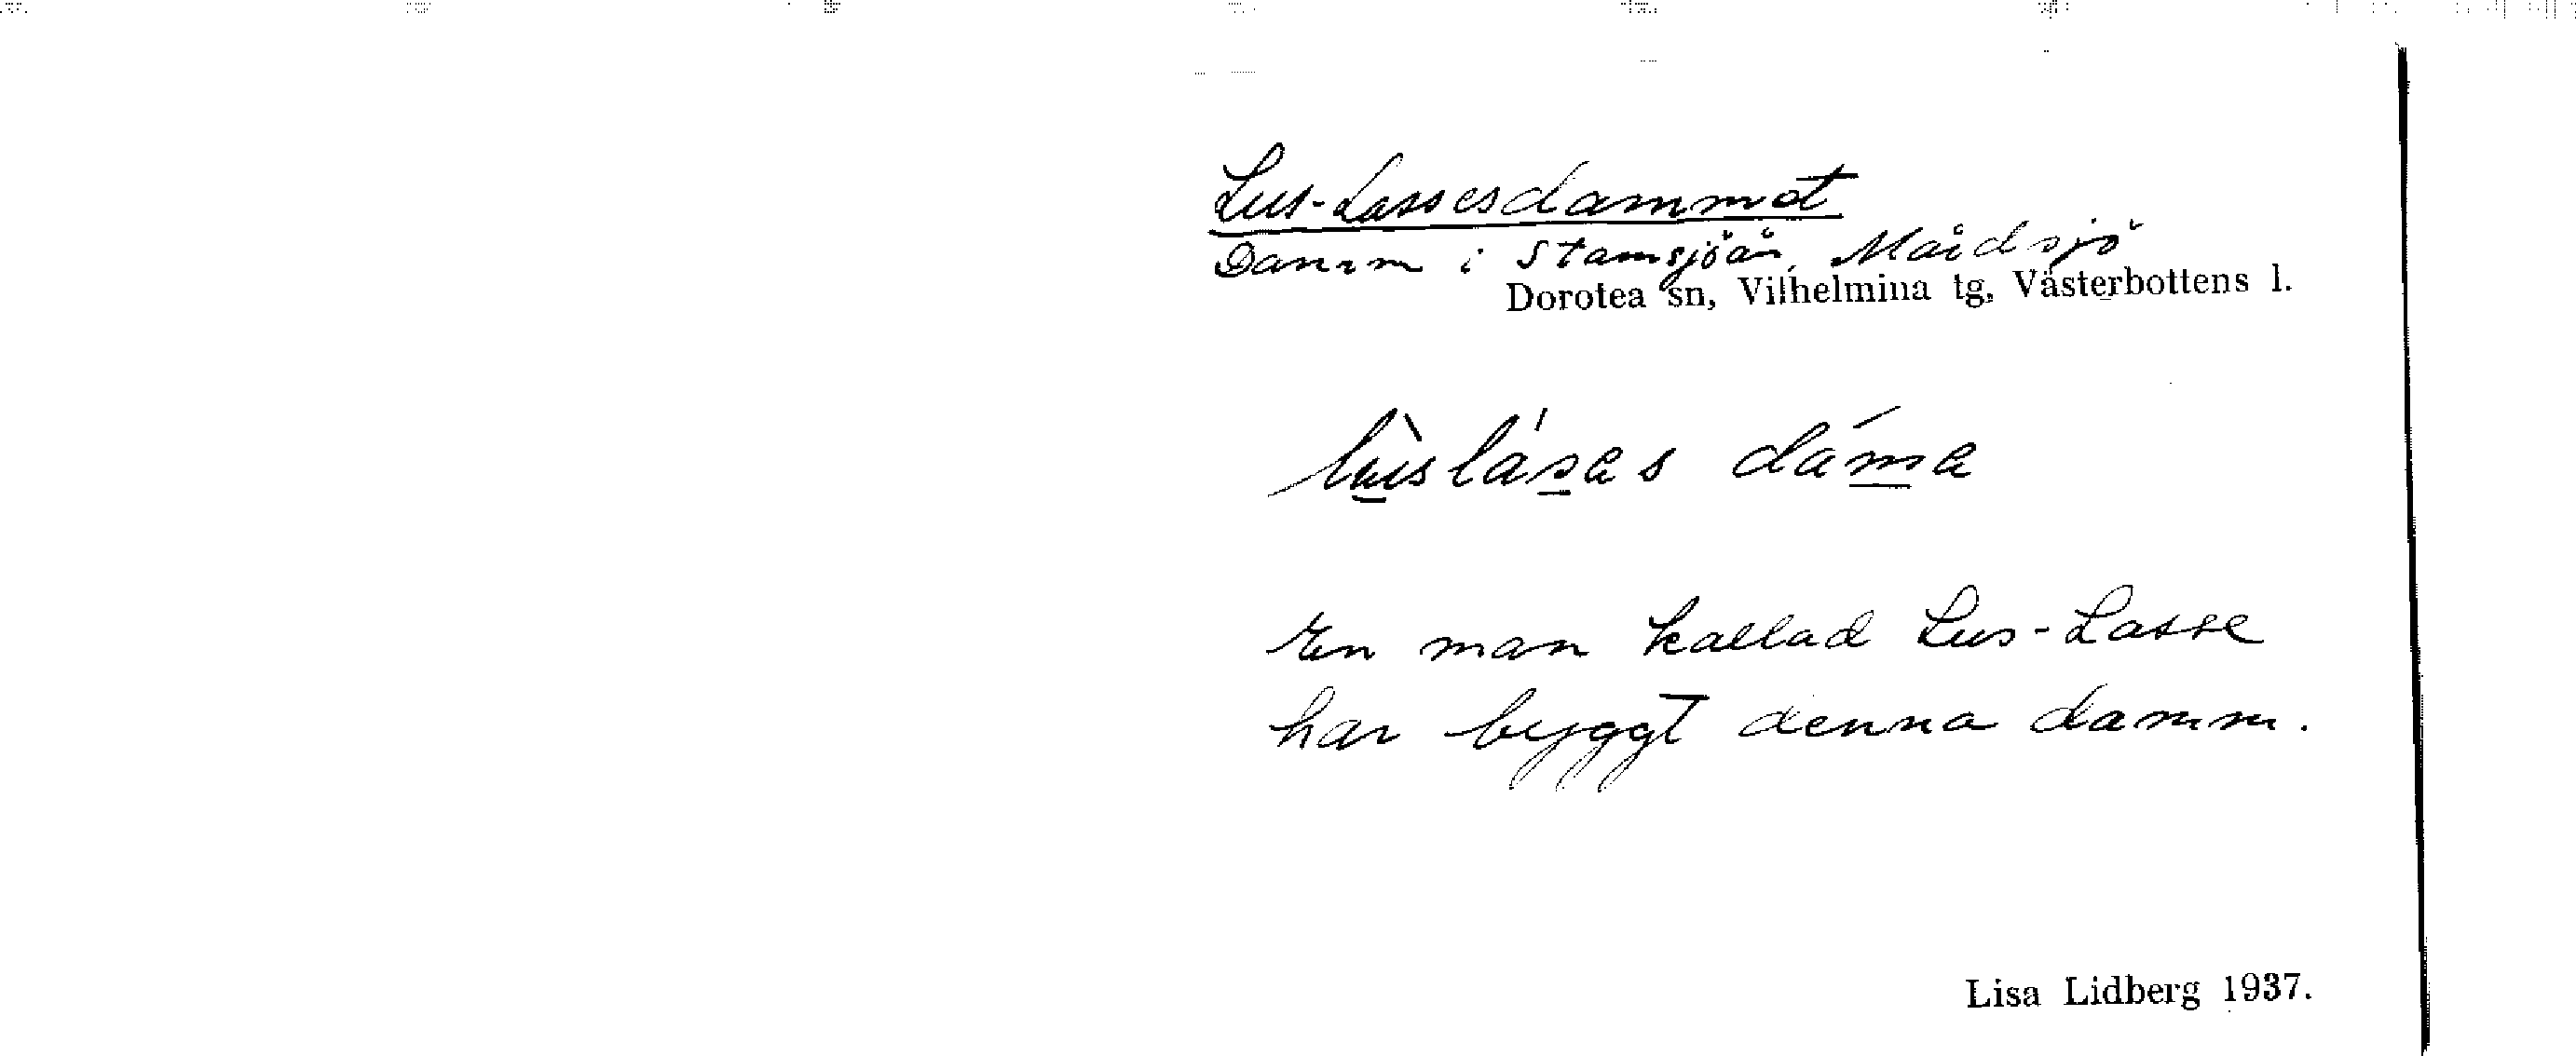 Lus-Lassesdammet
Damm i Stamsjöån, Mårdsjö
Dorotea sn, Vilhelmina tg, Västerbottens l.
lùsláses dáme
En man kallad Lus-Lasse
har byggt denna damm.
Lisa Lidberg 1937.